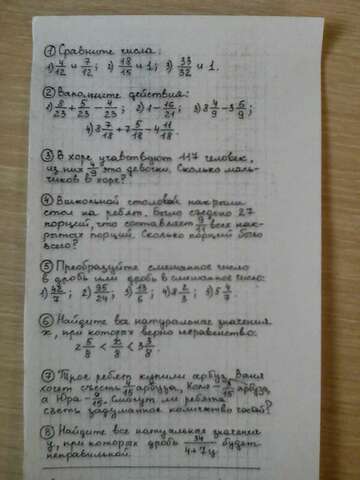 ① Сравните числа:
1) 4/12 и 7/12; 2) 18/15 и 1; 3) 33/32 и 1.
② Выполните действия:
1) 8/23 + 5/23 - 4/23; 2) 1 - 16/21; 3) 8 4/9 - 3 5/9;
4) 8 7/18 + 7 5/18 - 4 11/18.
③ В хоре участвуют 117 человек,
из них 4/9 это девочки. Сколько маль-
чиков в хоре?
④ В школьной столовой накрыли
стол на ребят. Было съедено 27
порций, что составляет 9/11 всех нак-
рытых порций. Сколько порций было
всего?
⑤ Преобразуйте смешанное число
в дробь или дробь в смешанное число:
1) 43/7; 2) 95/24; 3) 13/6; 4) 8 2/3; 5) 5 4/9.
⑥ Найдите все натуральные значения
x, при которых верно неравенство:
2 5/8 < x/8 < 3 3/8.
⑦ Трое ребят купили арбуз. Ваня
хочет съесть арбуза, Коля - арбуза,
а Юра - Смогут ли ребята
съесть задуманное количество
⑧ Найдите все натуральные значения
y, при которых дробь 34/(4+7y) будет
неправильной.